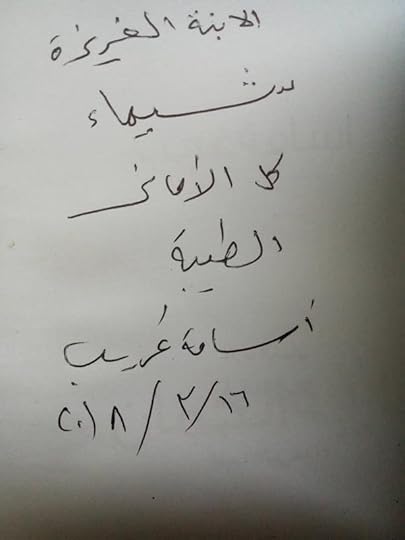 الابنة العزيزة
شيماء
كل الأماني
الطيبة
أسامة غريب
١٦/٢/٢٠١٨